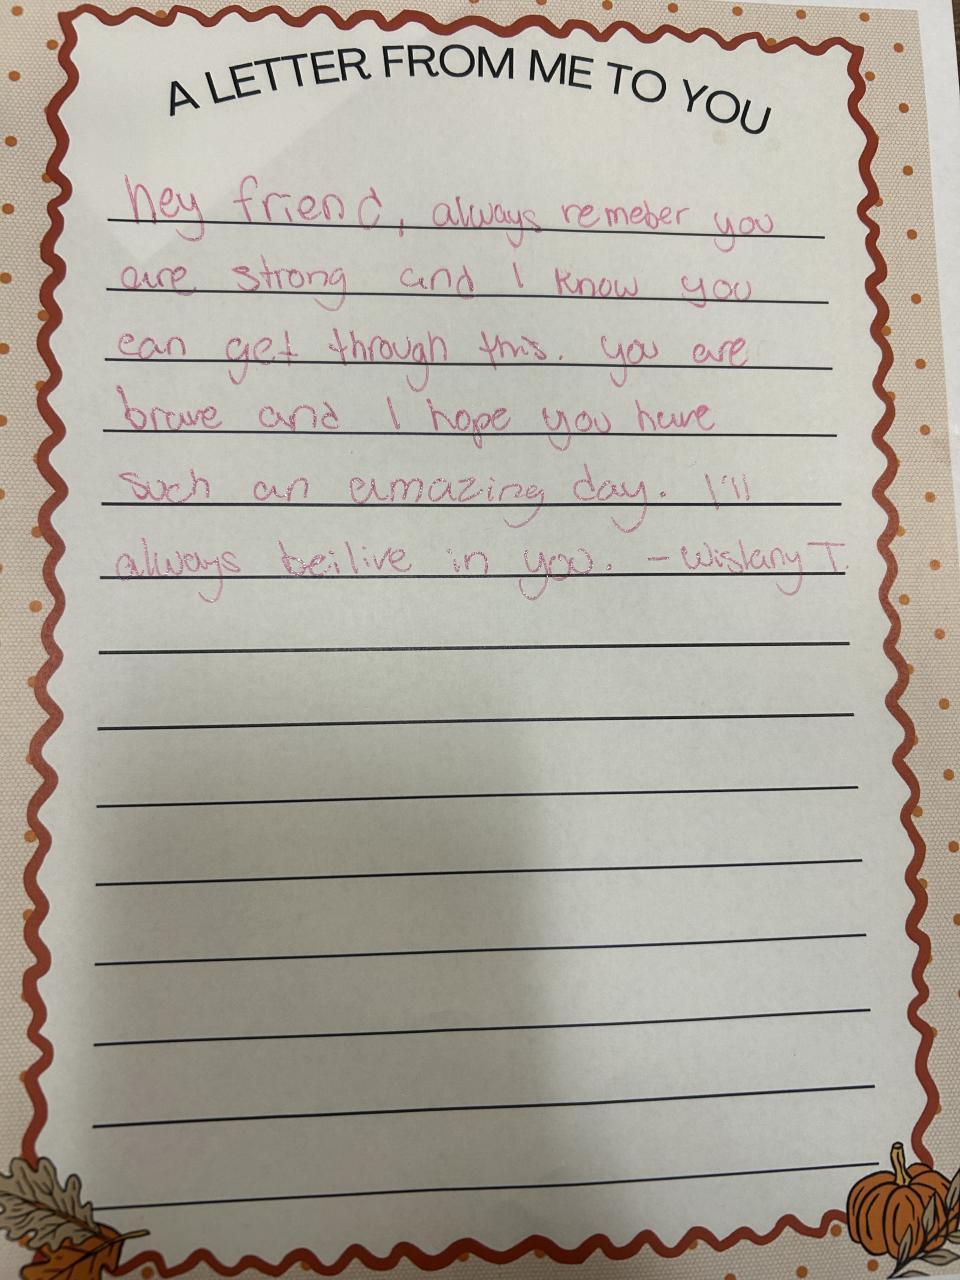 A LETTER FROM ME TO YOU
hey friend, always remeber you
are strong and I know you
can get through this. you are
brave and I hope you have
such an amazing day. I'll
always beilive in you. - Wislany T.